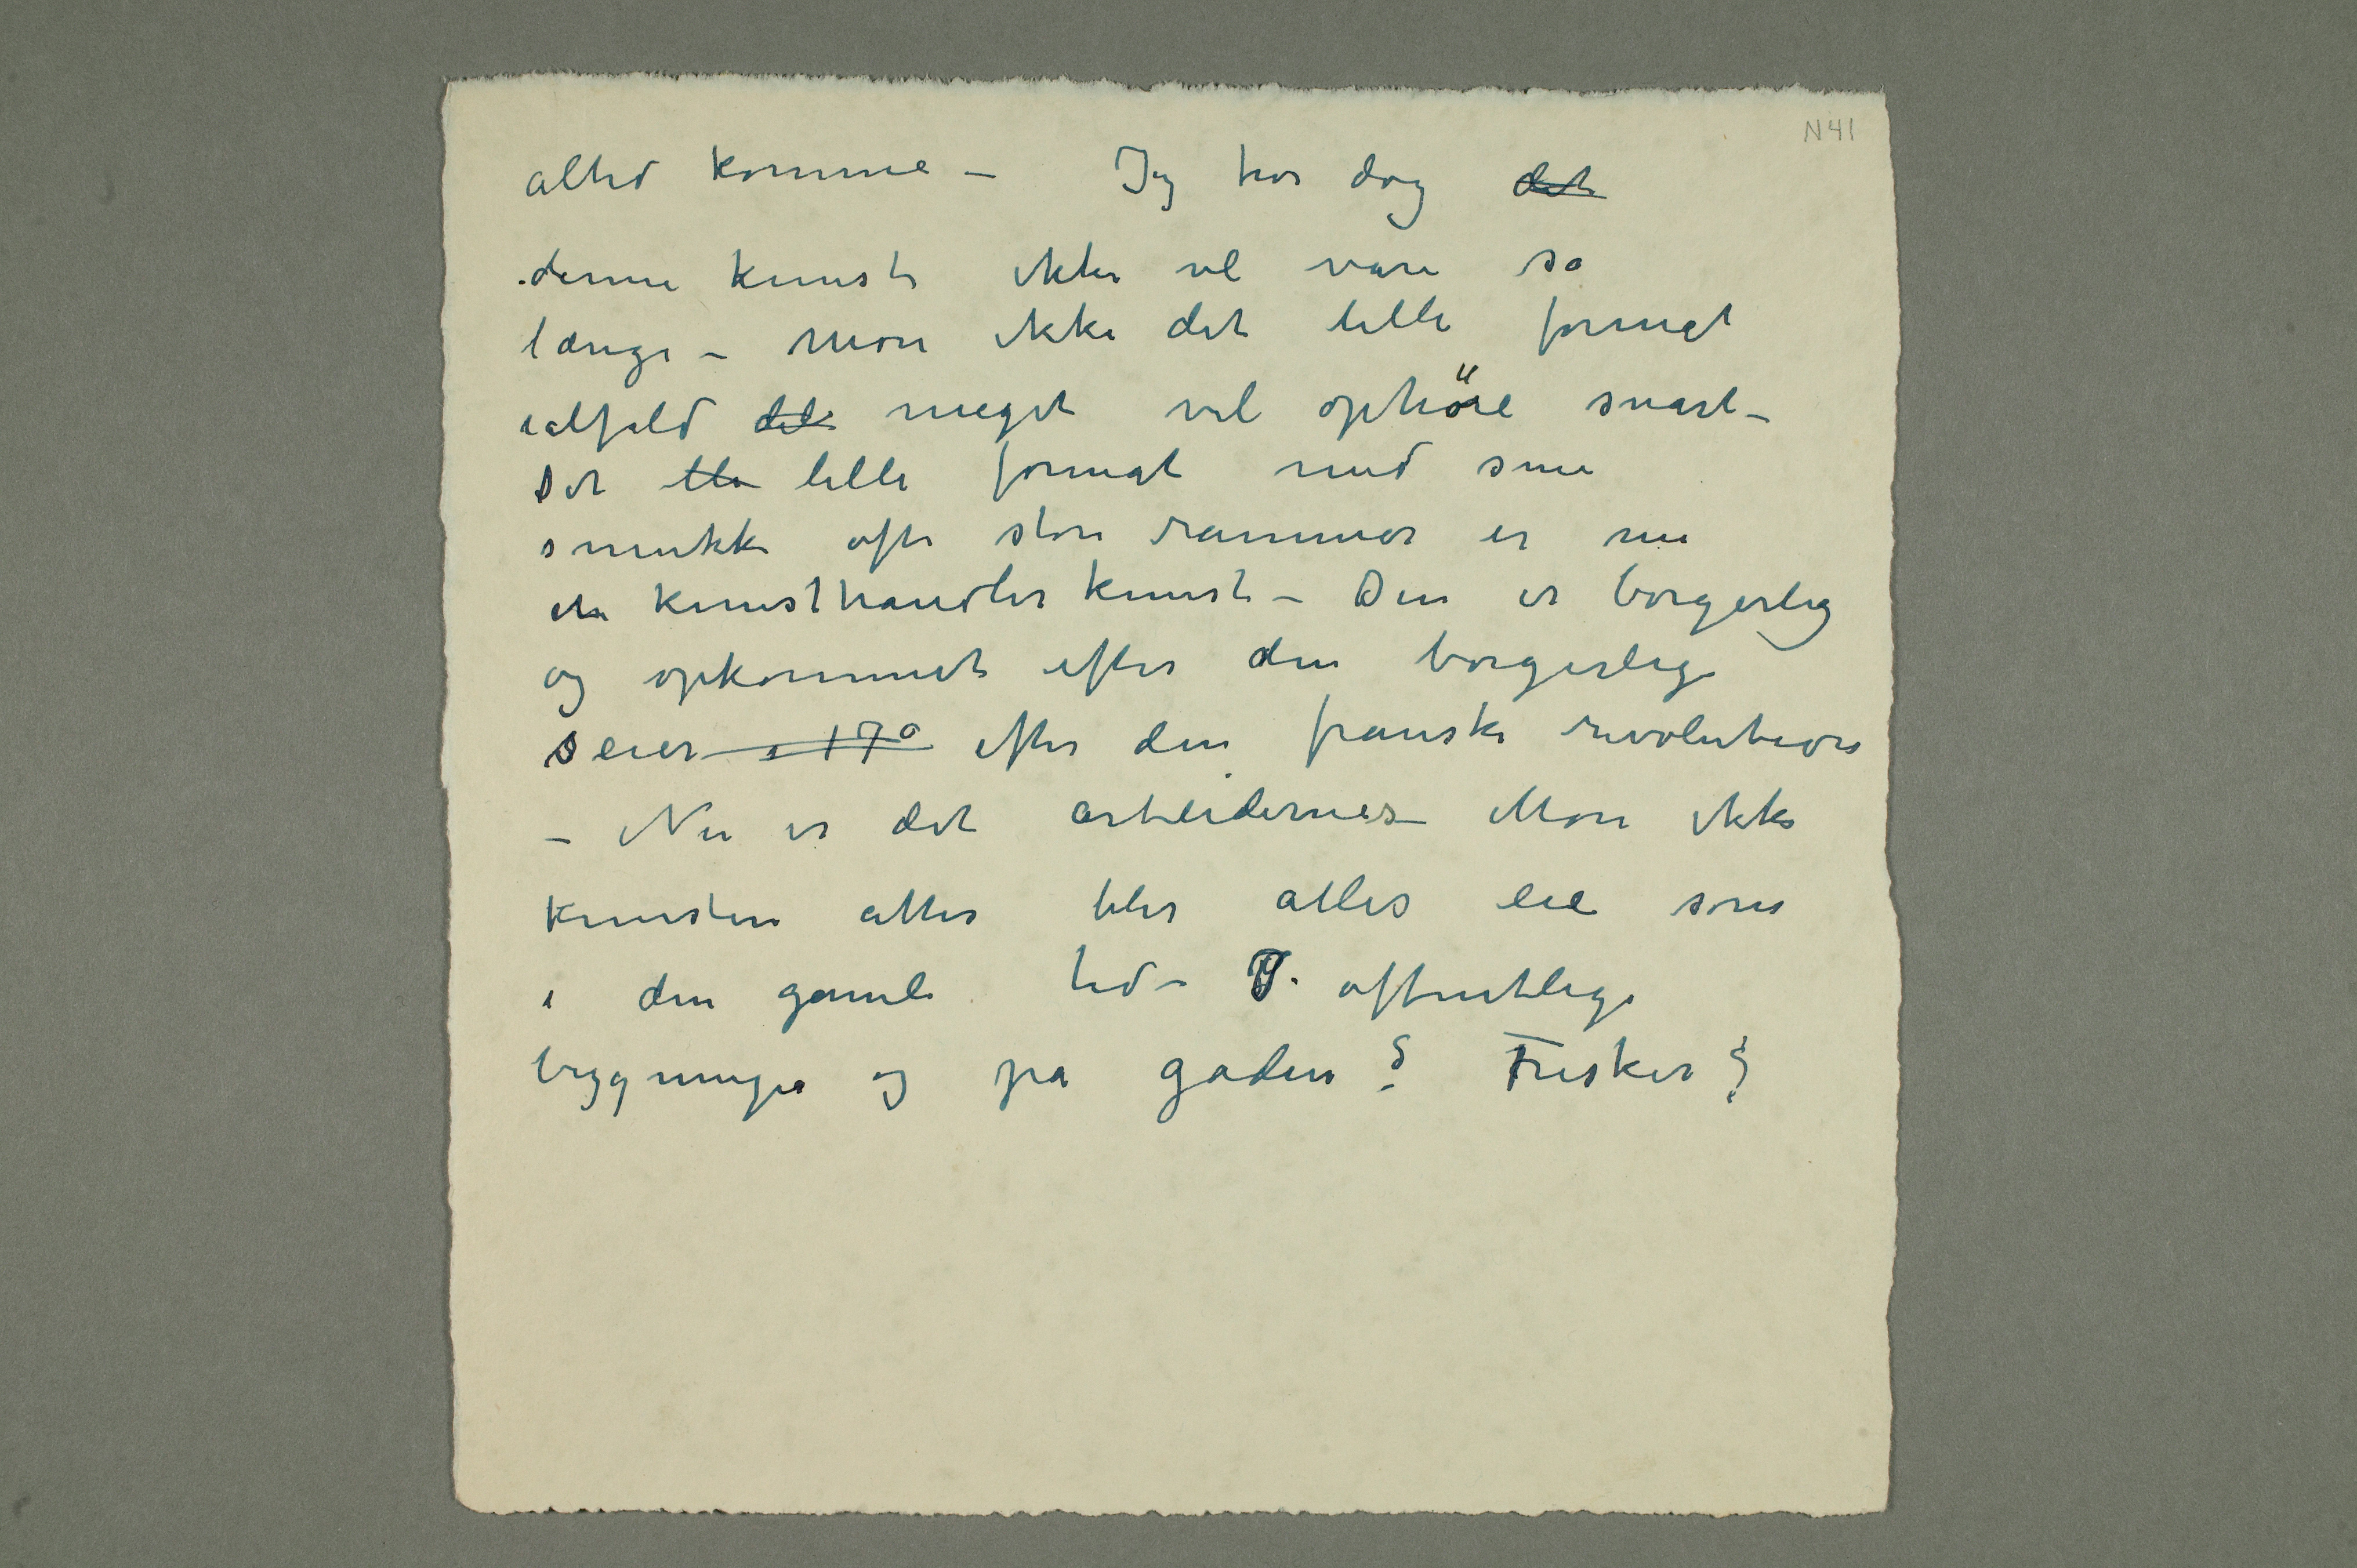 N 41
altid komme – Jeg tror dog det
denne kunst ikke vil vare så
længe – Mon ikke det lille format
ialfald det meget vil ophöre snart –
Det lille format med sine
smukke ofte store rammer er nu
en kunsthandlerkunst – Den er borgerlig
og opkommet efter den borgerlige
seier i 170 efter den franske revolution
– Nu er det arbeidernes – Mon ikke
kunsten atter blir alles eie som
i den gamle tid – I offentlige
bygninger og på gaden? Fresker?